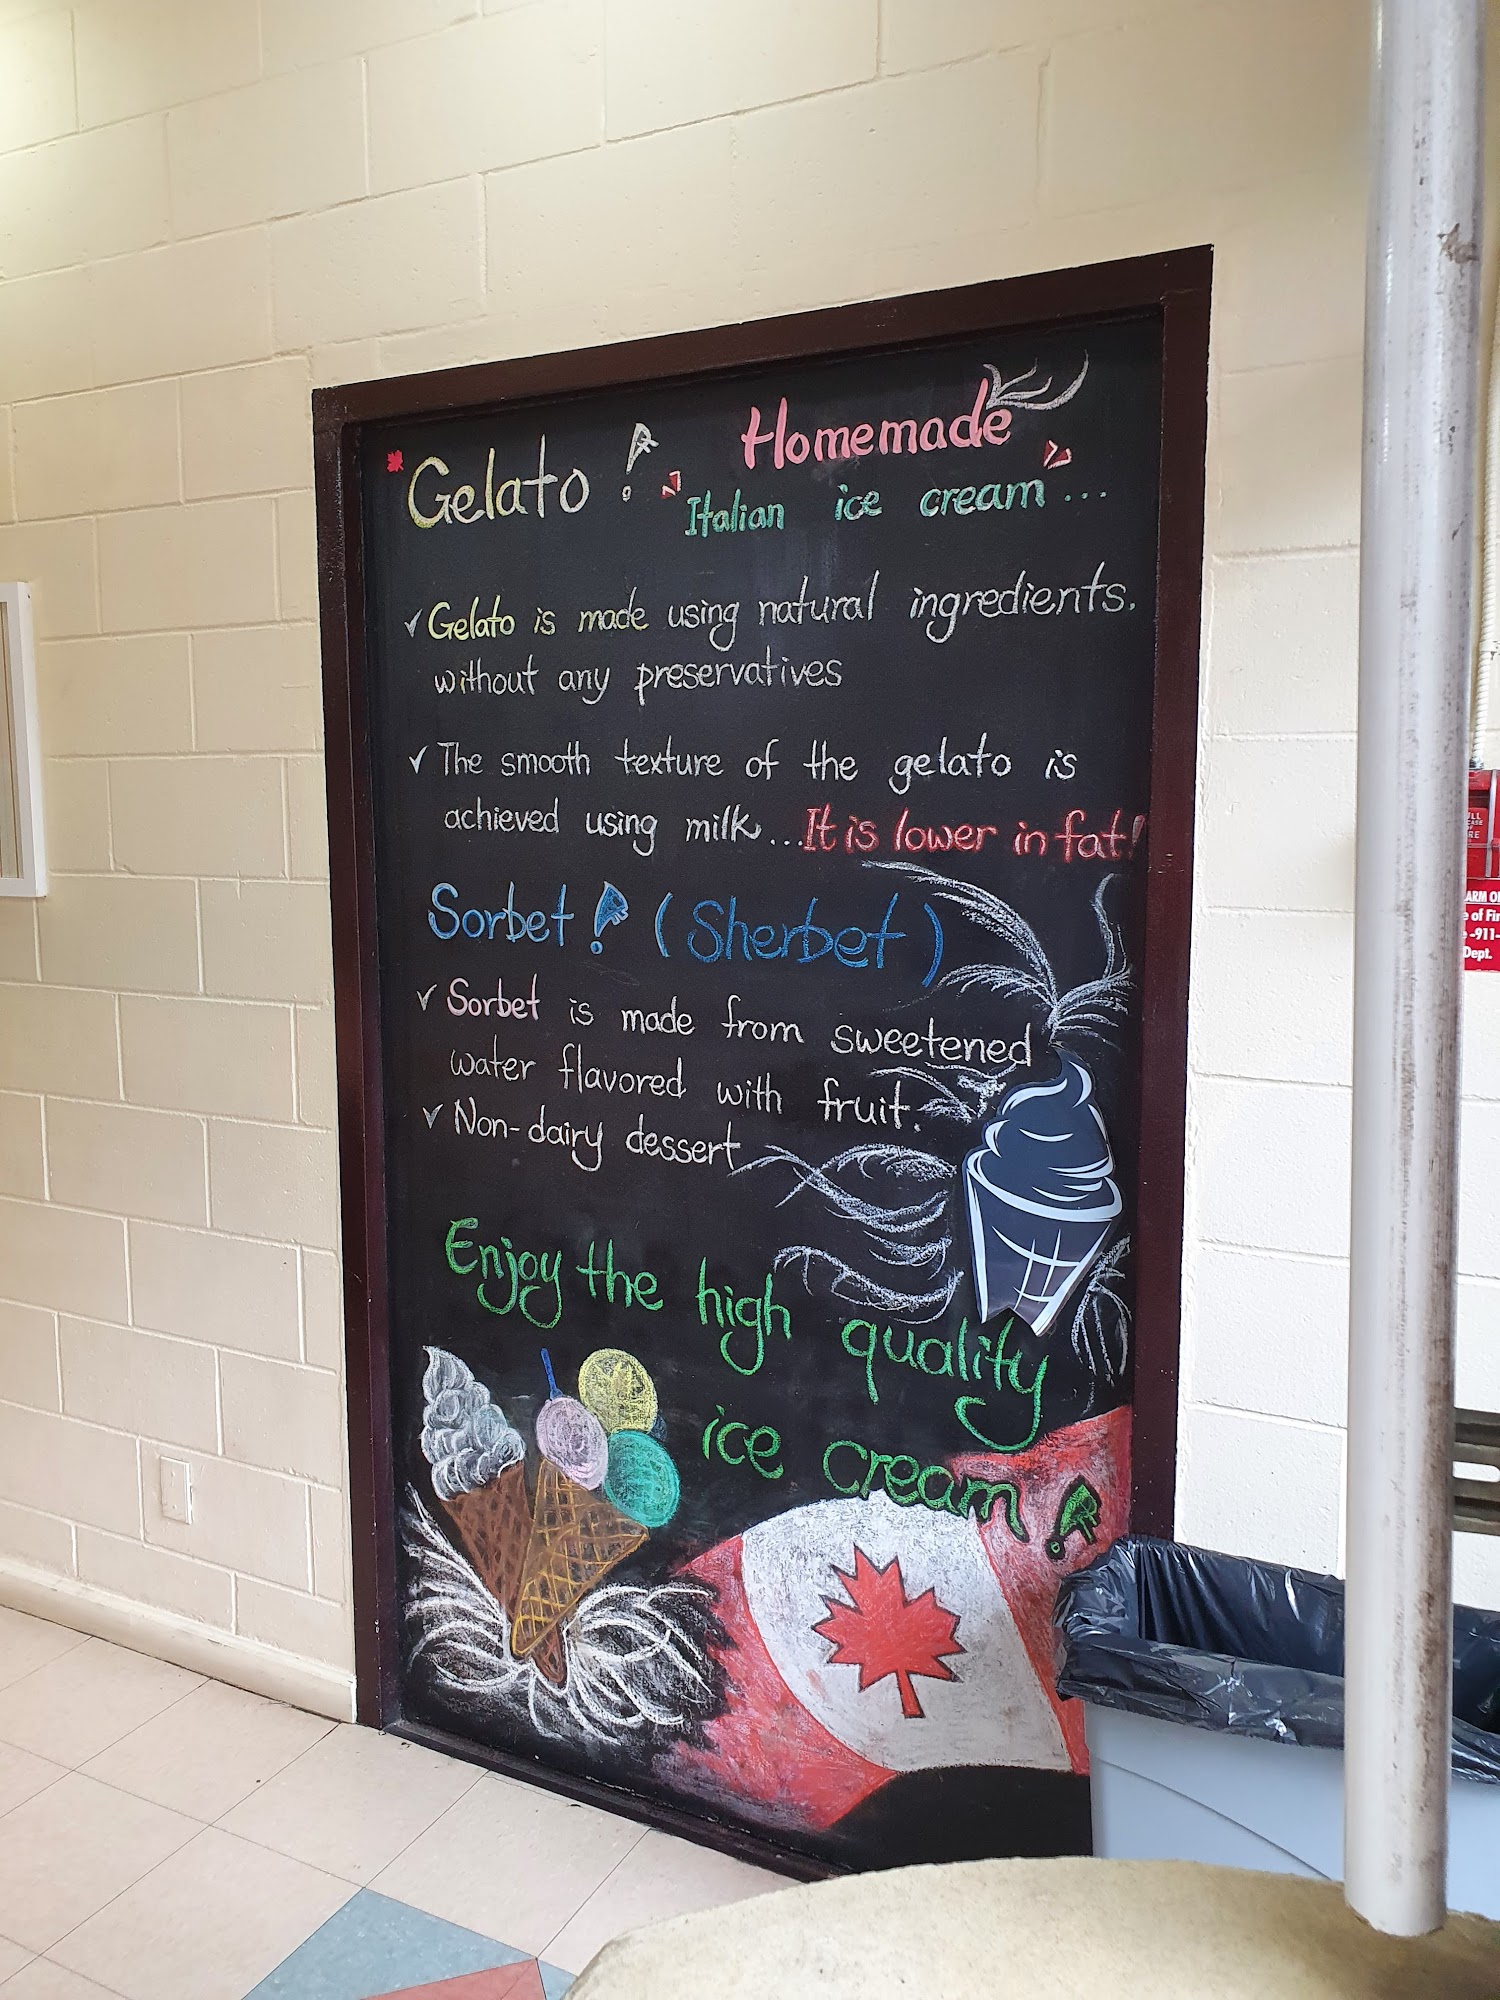 Gelato!
Homemade
Italian ice cream...
✓ Gelato is made using natural ingredients.
without any preservatives
✓ The smooth texture of the gelato is
achieved using milk...It is lower in fat!
Sorbet! (Sherbet)
✓ Sorbet is made from sweetened
water flavored with fruit.
✓ Non-dairy dessert
Enjoy the high quality
ice cream!
ARM
of Fir
-911-
Dept.